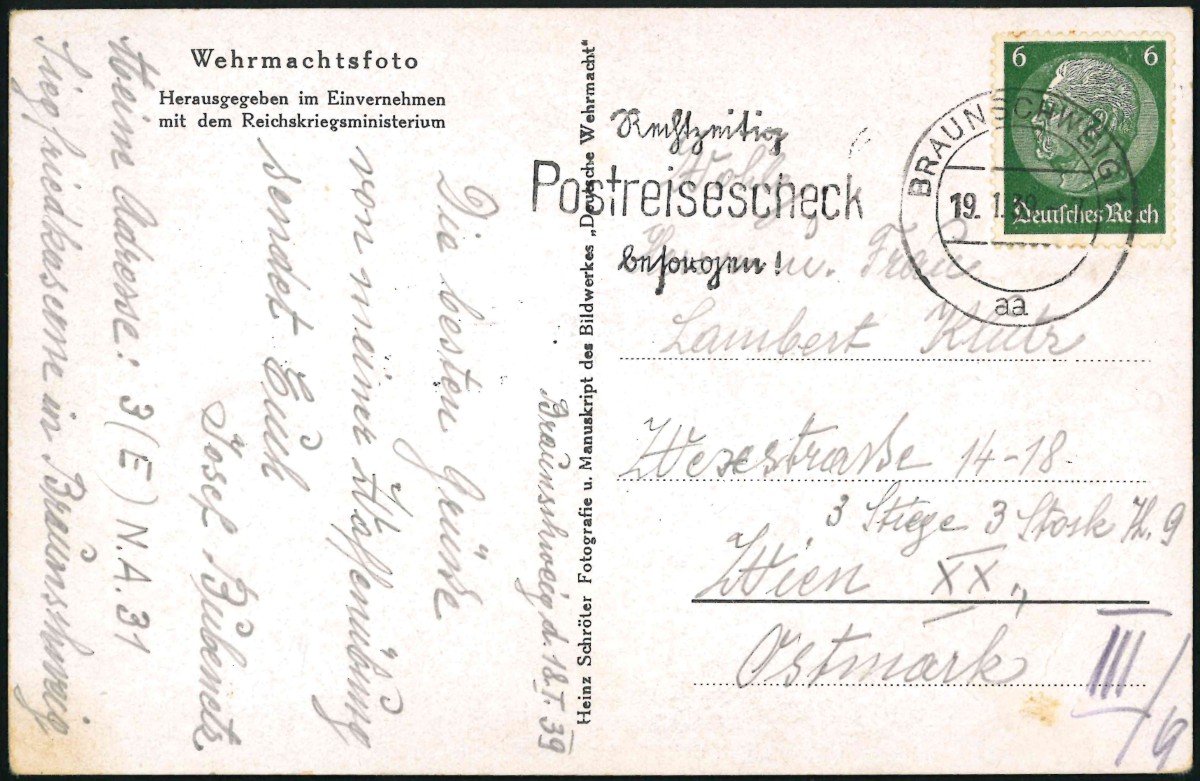 Wehrmachtsfoto
Herausgegeben im Einvernehmen
mit dem Reichskriegsministerium
Braunschweig d. 18.I.39
Die besten Grüsse
von meiner Waffenübung
sendet Euch
Josef
Meine Adresse: 3(E) N.A. 31
Siegfriedkaserne in Braunschweig
Heinz Schröter Fotografie u. Manuskript des Bildwerkes „Deutsche Wehrmacht“
Rechtzeitig
Postreisescheck
besorgen!
BRAUNSCHWEIG
19. 1. 39
aa
6 6
Deutsches Reich
Wohlg.
Herrn u. Frau
Lambert
14-18.
3 Stiege 3 Stock Th. 9
Wien XX.,
Ostmark
III/9